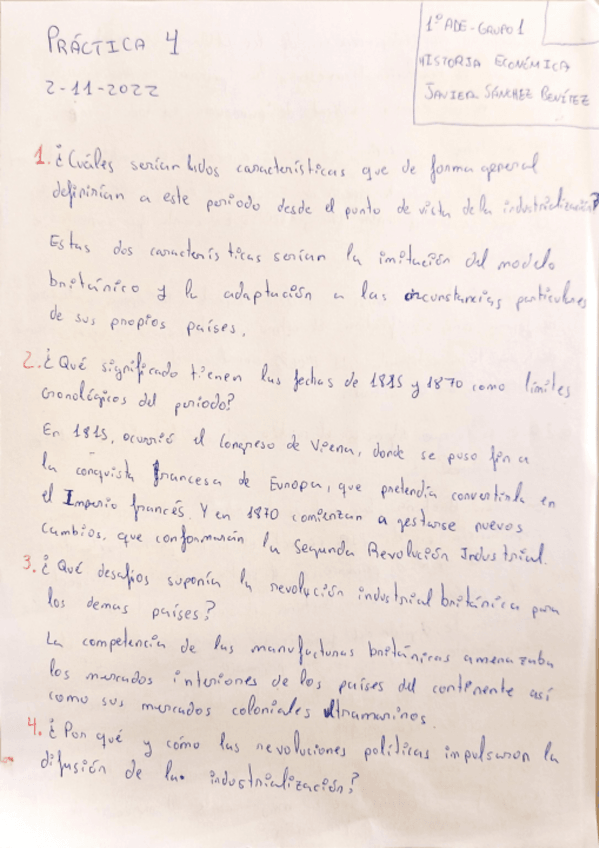 PRÁCTICA 4
2-11-2022
1º ADE - GRUPO 1
HISTORIA ECONÓMICA
JAVIER SÁNCHEZ BENÍTEZ
1. ¿Cuáles serían las dos características que de forma general
definirían a este periodo desde el punto de vista de la industrialización?
Estas dos características serían la imitación del modelo
británico y la adaptación a las circunstancias particulares
de sus propios países.
2. ¿Qué significado tienen las fechas de 1815 y 1870 como límites
cronológicos del periodo?
En 1815, ocurrió el Congreso de Viena, donde se puso fin a
la conquista francesa de Europa, que pretendía convertirla en
el Imperio francés. Y en 1870 comienzan a gestarse nuevos
cambios, que conformarán la Segunda Revolución Industrial.
3. ¿Qué desafíos suponía la revolución industrial británica para
los demas países?
La competencia de las manufacturas británicas amenazaba
los mercados interiores de los países del continente así
como sus mercados coloniales ultramarinos.
4. ¿Por qué y cómo las revoluciones políticas impulsaron la
difusión de la industrialización?